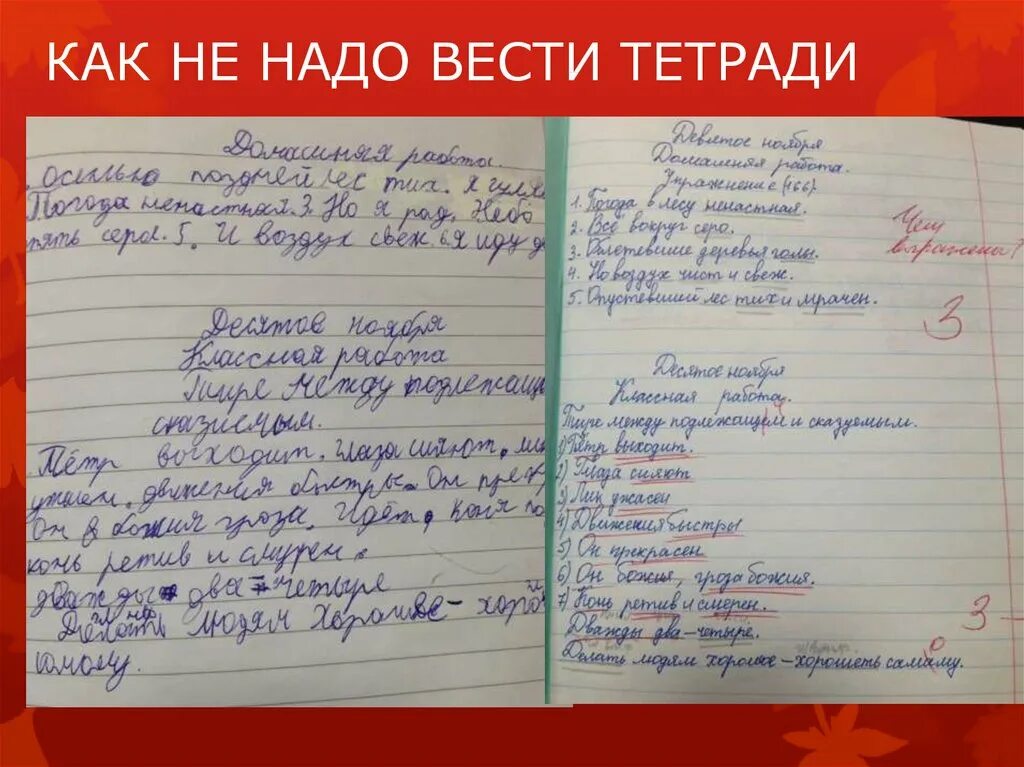 КАК НЕ НАДО ВЕСТИ ТЕТРАДИ
Домасиняя работа.
осенью поздней лес тих. я гуля
Погода ненастная. 3. Но я рад. Небо
пять серо. 5. И воздух свеж 6 я иду
Десятое ноября
Классная работа
Тире между подлежащ
сказуемым.
Пётр выходит, глаза сияют.
ужасен, движения быстры. Он прек
Он в божия гроза. Идёт, коня
конь ретив и смирен.
дважды два – четыре
Делать людям хорошее – хоро
самому.
Девятое ноября
Домашняя работа.
Упражнение (166).
1. Погода в лесу ненастная.
2. Всё вокруг серо.
3. Облетевшие деревья голы.
4. Но воздух чист и свеж.
5. Опустевший лес тих и мрачен.
Чем
выражены?
3
Десятое ноября
Классная работа.
Тире между подлежащем и сказуемым.
1) Пётр выходит.
2) Глаза сияют
3) Лик ужасен
4) Движения быстры
5) Он прекрасен
6) Он божия, гроза божия.
7) Конь ретив и смирен.
3
Дважды два – четыре.
Делать людям хорошое – хорошеть самаму.